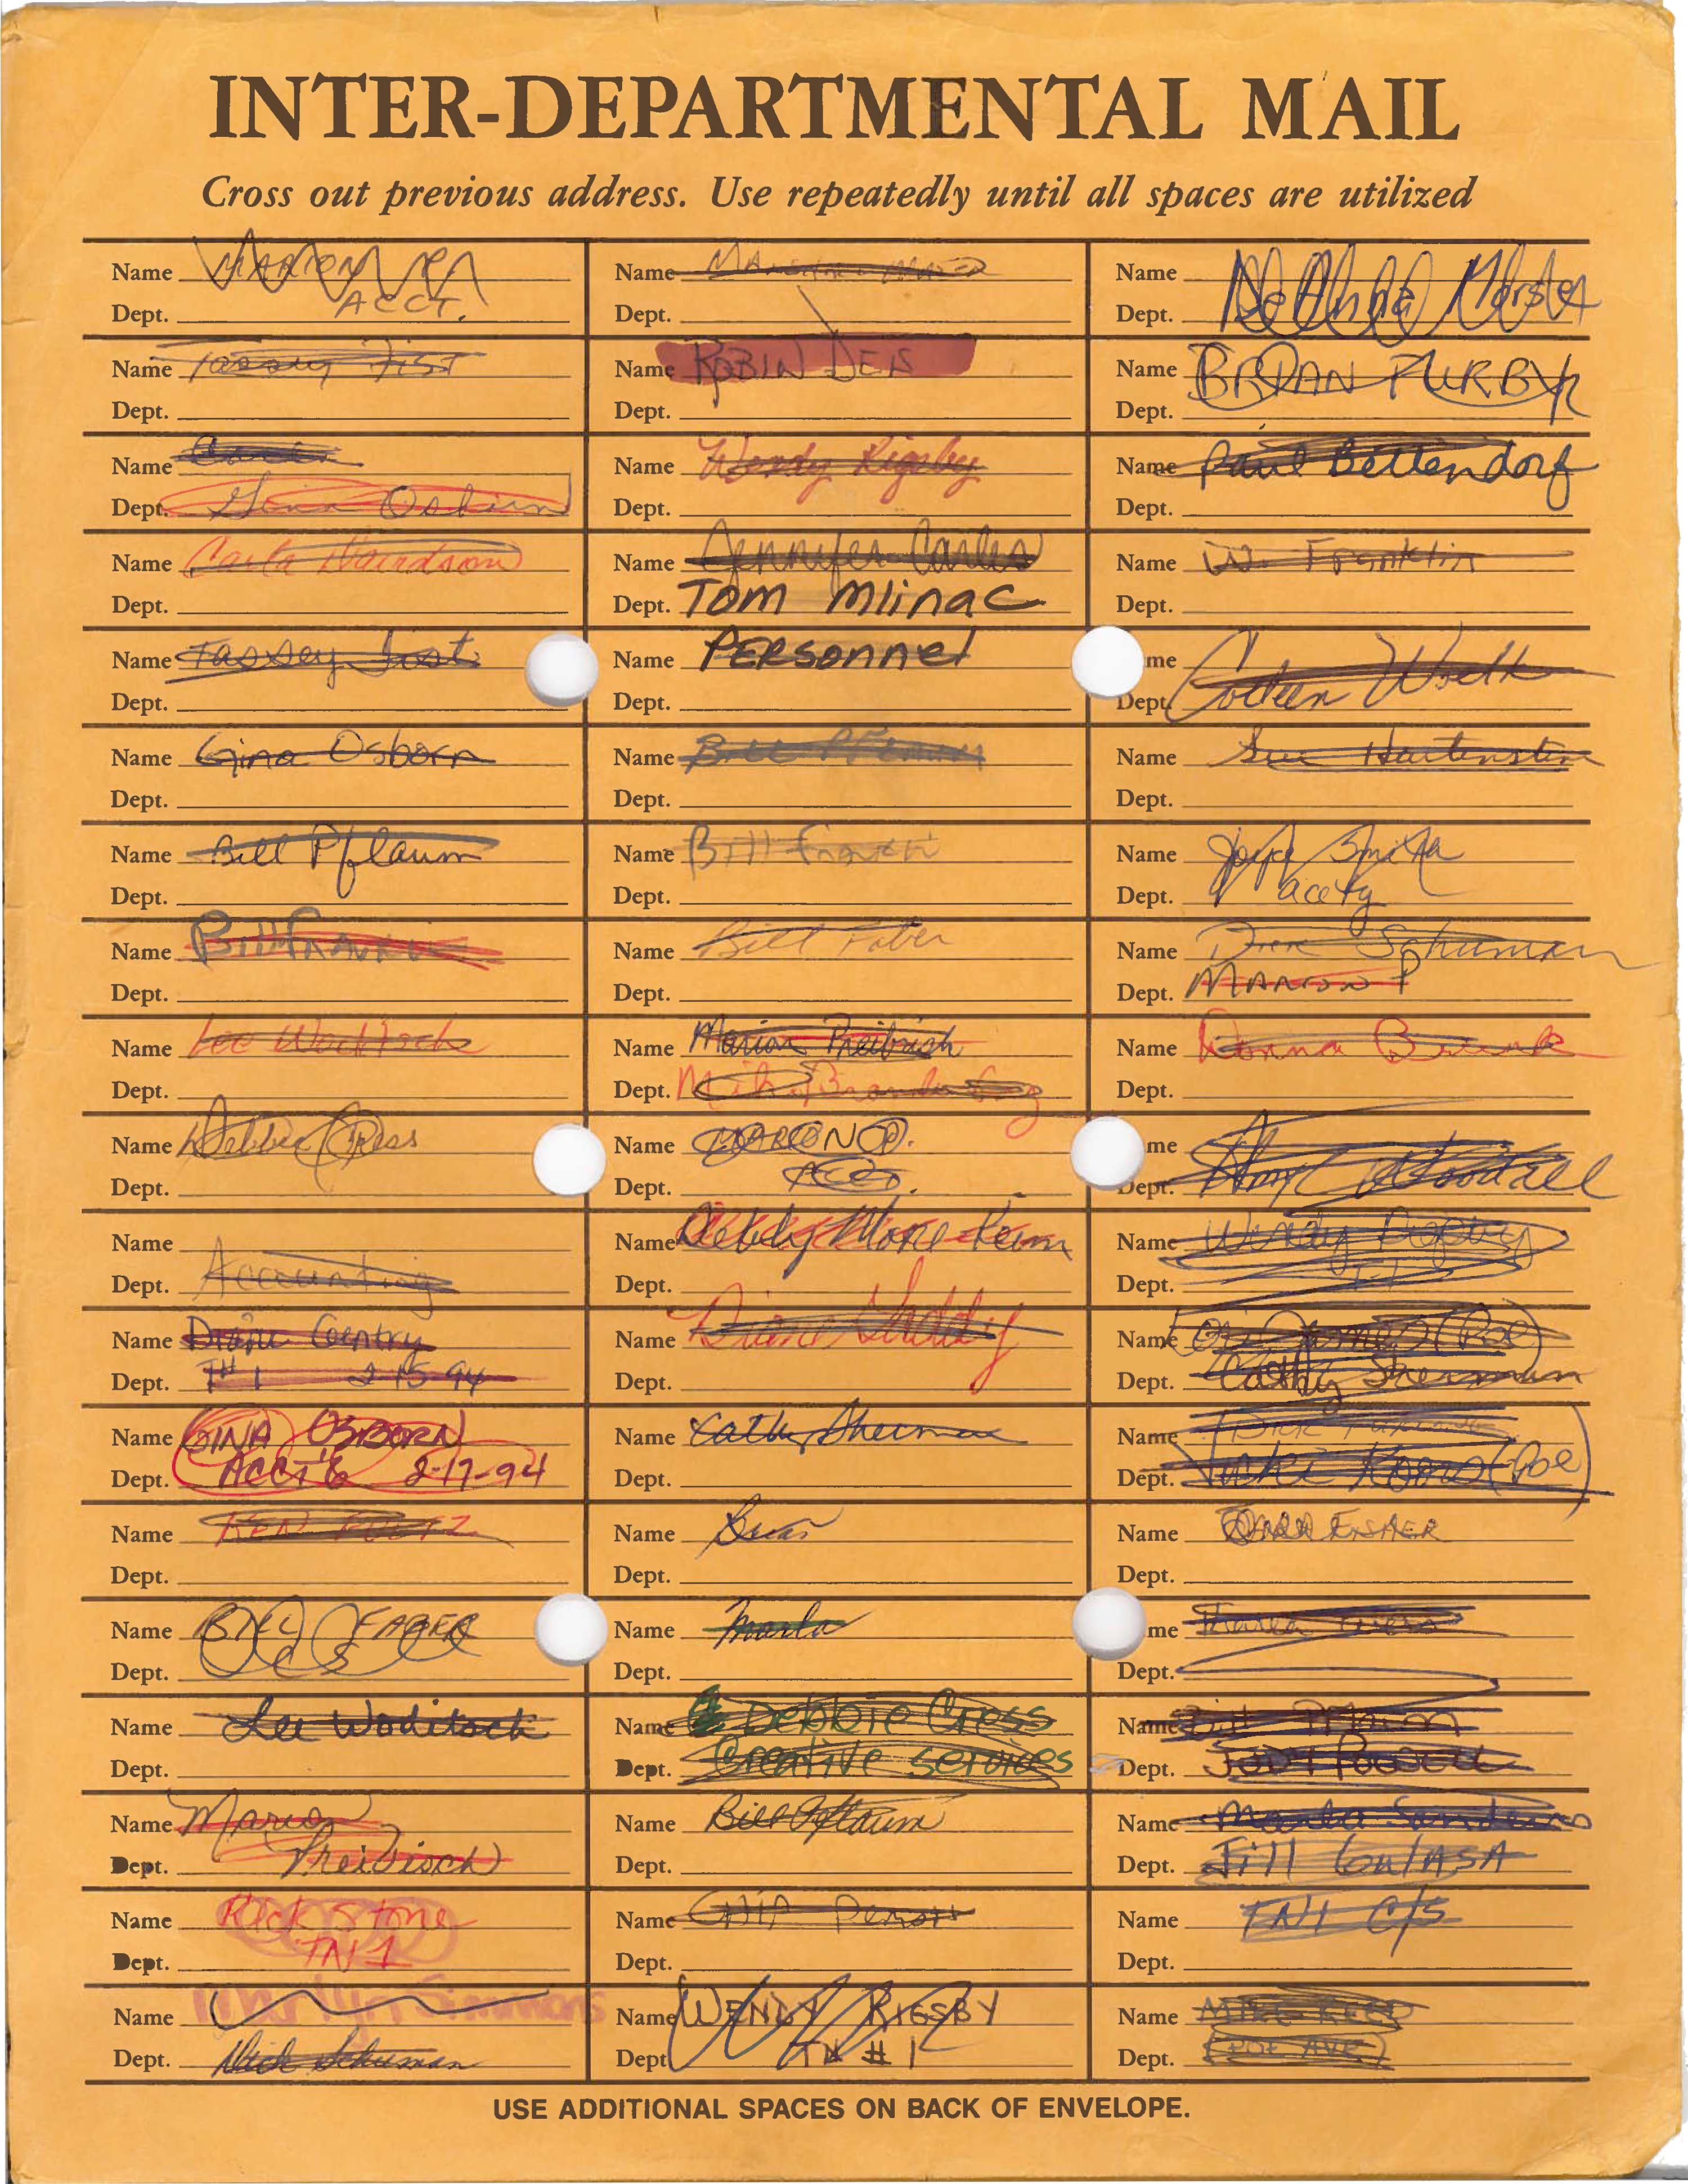 INTER-DEPARTMENTAL MAIL
Cross out previous address. Use repeatedly until all spaces are utilized
Name MARION
Dept. ACCT.
Name Tassey Fist
Dept.
Name
Dept. Gina Osborn
Name Carla Davidson
Dept.
Name Tassey Fist
Dept.
Name Gina Osborn
Dept.
Name Bill Pflaum
Dept.
Name Bill
Dept.
Name Lee
Dept.
Name Debbie Cress
Dept.
Name
Dept. Accounting
Name Diane Gentry
Dept. 2-15-94
Name GINA OSBORN
Dept. 2-17-94
Name KEN
Dept.
Name BILL FABER
Dept. CS
Name Lee Woditsch
Dept.
Name Marion
Dept. Preibisch
Name Rick Stone
Dept. TN 1
Name Marilyn Simmons
Dept. Dick Schuman
Name
Dept.
Name ROBIN DEIS
Dept.
Name Wendy Rigsby
Dept.
Name Jennifer Carles
Dept. Tom Mlinac
Name PERsonnel
Dept.
Name Bill Pflaum
Dept.
Name Bill
Dept.
Name Bill Faber
Dept.
Name Marion Preibisch
Dept. Mike Brandenburg
Name MARION P.
Dept. ACCT.
Name Debby More-Keim
Dept.
Name Diane
Dept.
Name Cathy Sherman
Dept.
Name Brian
Dept.
Name Marla
Dept.
Name Debbie Cress
Dept. Creative services
Name Bill Pflaum
Dept.
Name
Dept.
Name WENDY RIGSBY
Dept. TN # 1
Name DeAnna
Dept.
Name BRYAN FURBY
Dept.
Name Paul Bettendorf
Dept.
Name W. Franklin
Dept.
me Colleen
Dept.
Name Sue Hartenstein
Dept.
Name Joyce Smith
Dept. acctg
Name Dick Schuman
Dept. MARION P
Name Donna
Dept.
me Amy
Dept.
Name Wendy Rigsby
Dept.
Name
Dept. Cathy Sherman
Name Dick
Dept.
Name FISHER
Dept.
me
Dept.
Name Bill Pflaum
Dept. JUDY
Name Marla
Dept. Jill
Name C/S
Dept.
Name MIKE REED
Dept. (POE AVE)
USE ADDITIONAL SPACES ON BACK OF ENVELOPE.